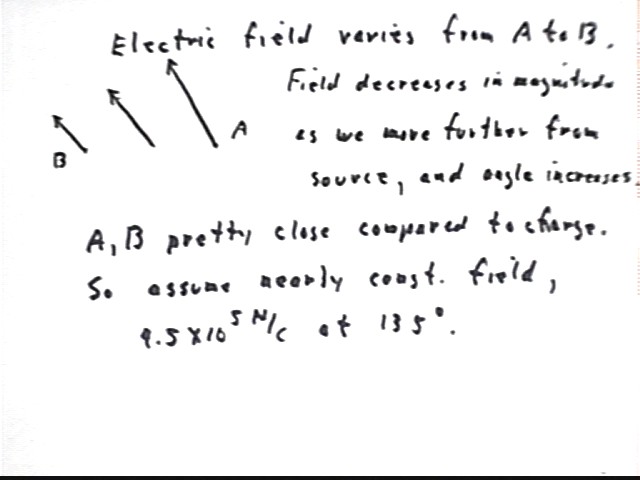 Electric field varies from A to B.
Field decreases in magnitude
A as we move further from
B
source, and angle increases.
A, B pretty close compared to charge.
So assume nearly const. field,
9.5 x 10^5 N/C at 135°.